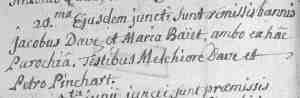 20.ma Ejusdem juncti sunt remissis bannis
Jacobus Dave, et Maria Baiet, ambo ex hac
Parochia, Testibus Melchiore Dave et
Petro Pinchart.
junii juncti sunt praemissis